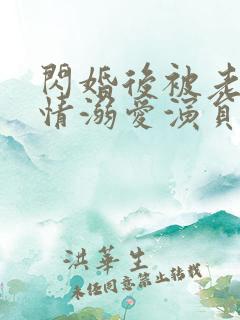 閃婚後被老
情溺愛演員
洪華生
未經同意禁止轉載